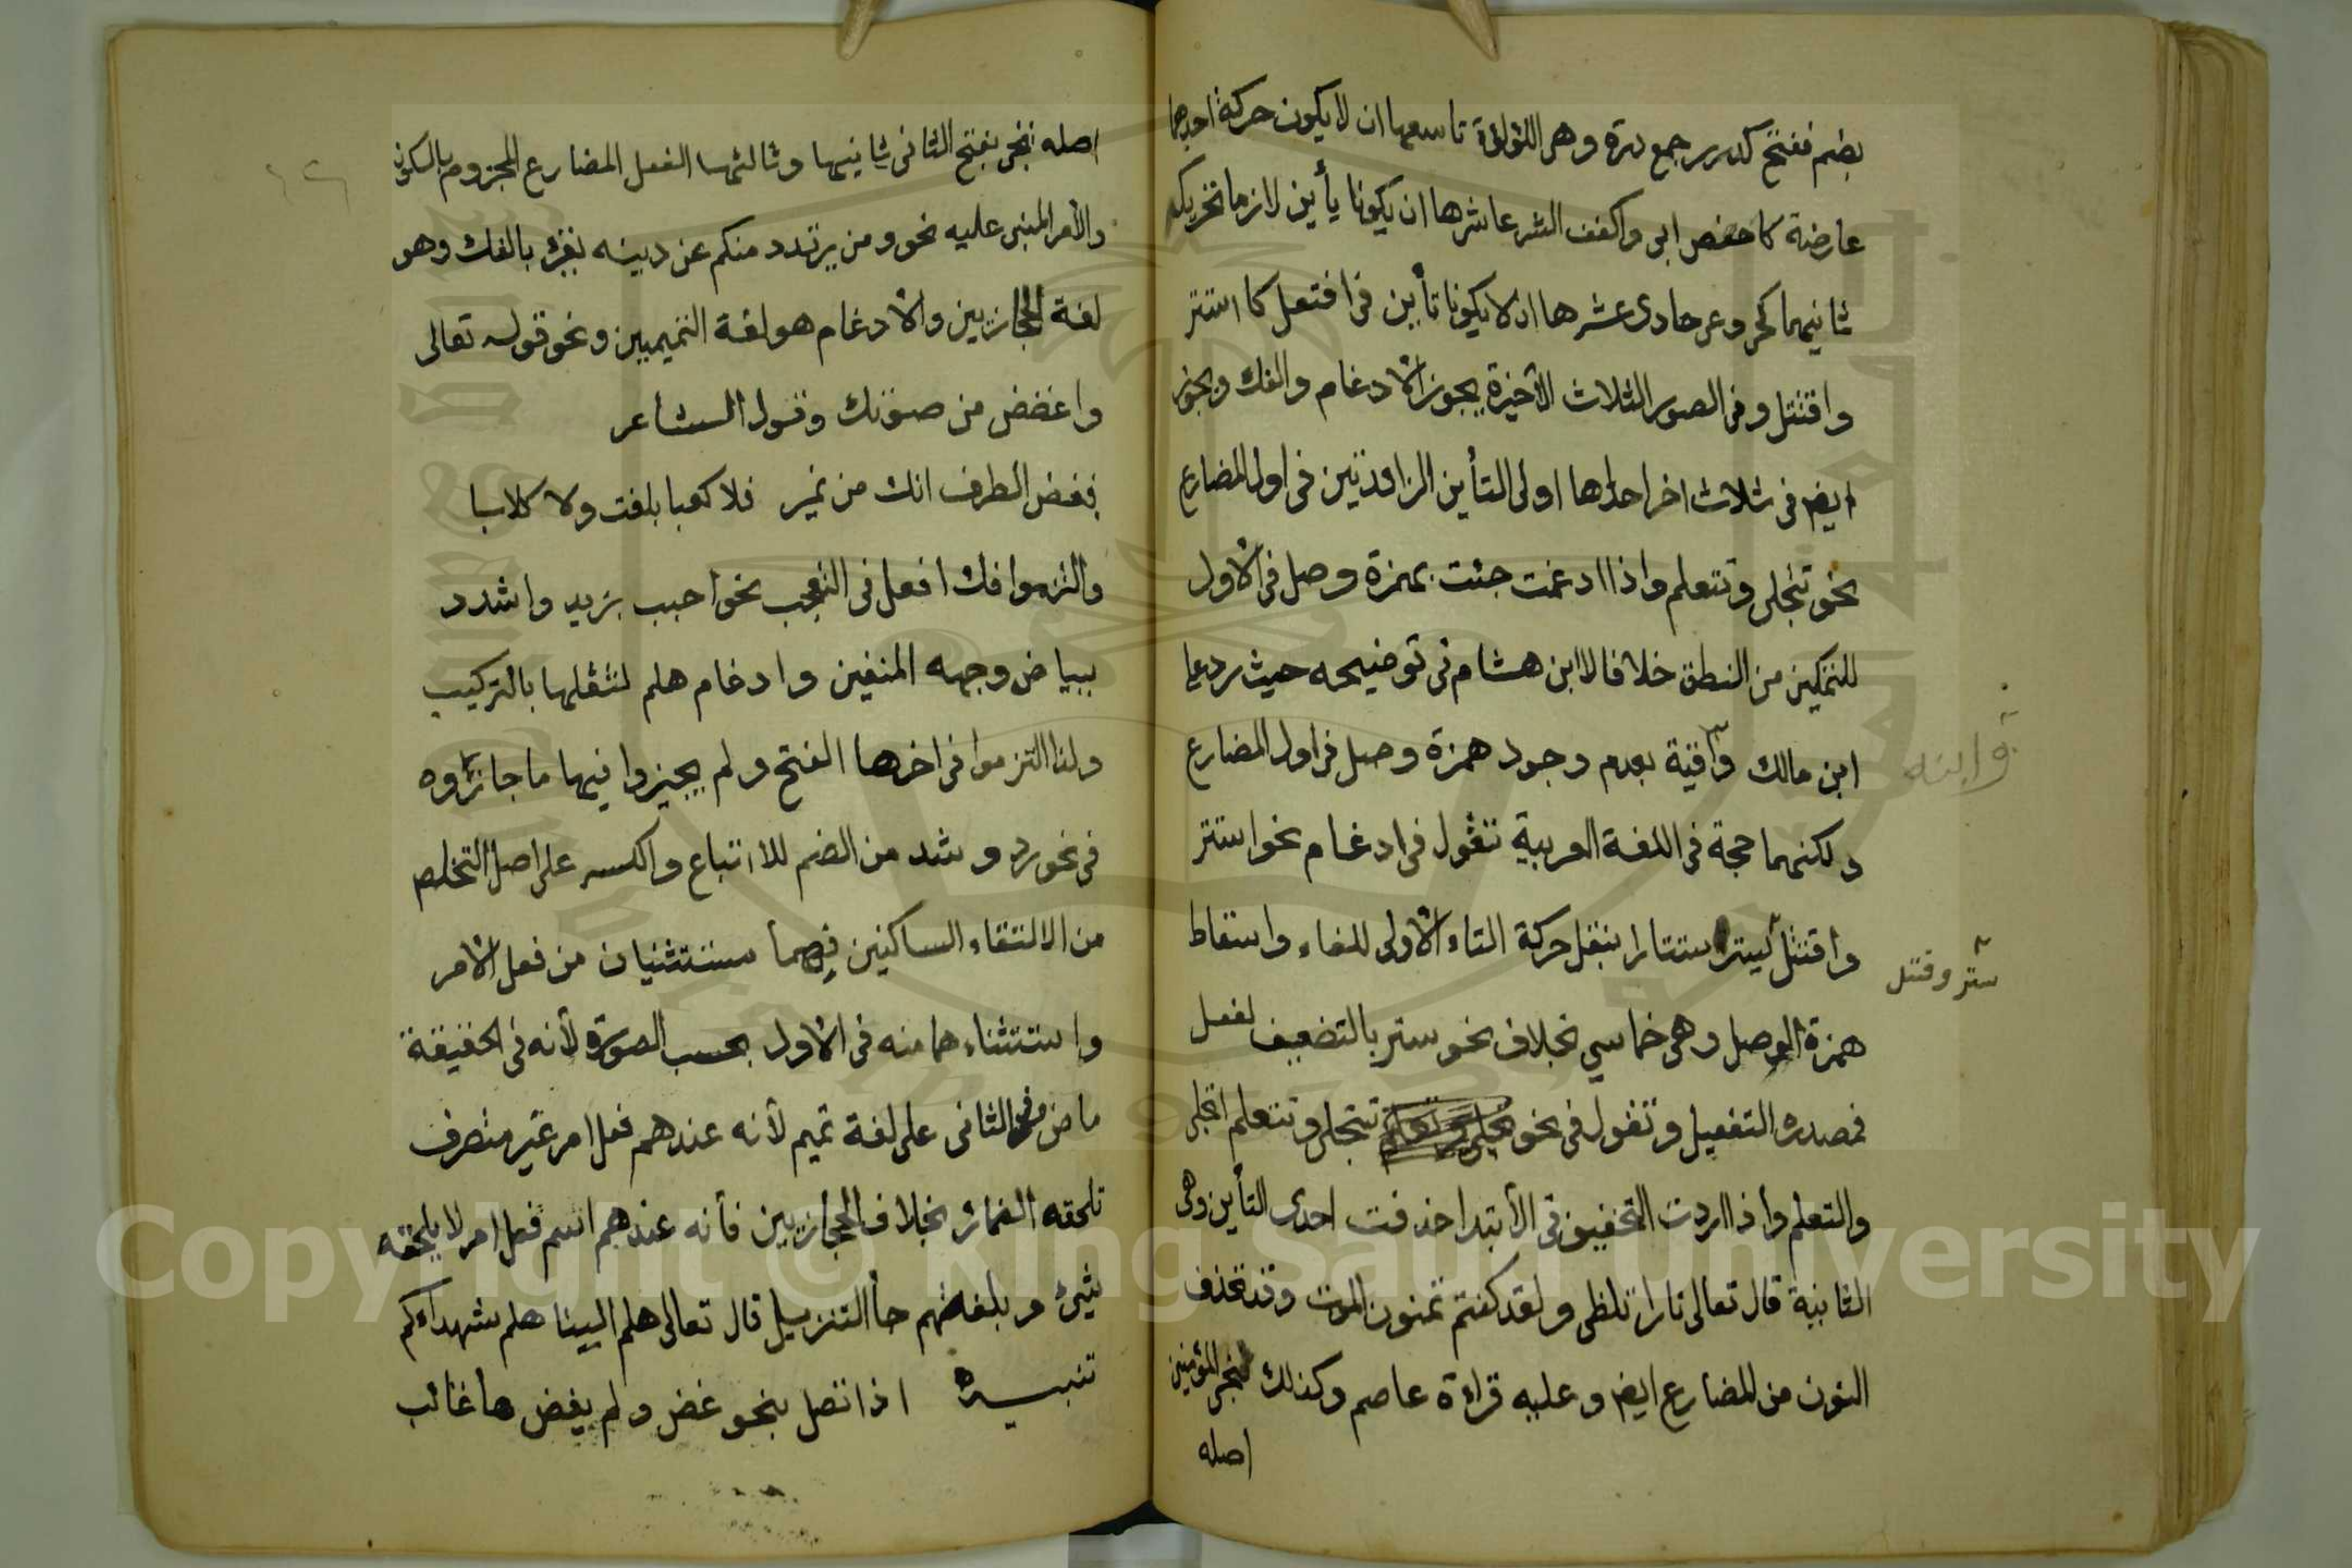 بضم ففتح كدرر جمع درة وهى اللؤلؤة تاسعها ان لا يكون حركة احدهما
عارضة كاخصص ابى واكفف الشر عاشرها ان يكونا يأين لازما تحريك
ثانيهما كحى وعى حادى عشرها ان لا يكونا تأين فى افتعل كاستتر
واقتتل وفى الصور الثلاث الأخيرة يجوز الادغام والفك ويجوز
ايض فى ثلاث اخر احداها اولى التأين الزائدتين فى اول المضارع
نحو تتجلى وتتعلم واذا ادغمت جئت بهمزة وصل فى الاول
للتمكين من النطق خلافا لابن هشام فى توضيحه حيث رد على
ابن مالك وآقية بعدم وجود همزة وصل فى اول المضارع
وابنه
ولكنهما حجة فى اللغة العربية تقول فى ادغام نحو استتر
واقتتل يستر ستارا بنقل حركة التاء الاولى للفاء واسقاط
ستر وقتل
همزة الوصل وهى خماسي بخلاف نحو ستر بالتضعيف لفعل
فمصدره التفعيل وتقول فى نحو تتجلى وتتعلم اتجلى
والتعلم واذا اردت التخفيف فى الأبتدا حذفت احدى التأين وهى
الثانية قال تعالى نارا تلظى ولقد كنتم تمنون الموت وقد تحذف
النون من المضارع ايض وعليه قراءة عاصم وكذلك نجى المؤمنين
اصله
اصله ننجى بفتح الثانى ثانيها وثالثها الفعل المضارع المجزوم بالسكون
والأمر المبنى عليه نحو ومن يرتدد منكم عن دينه يقرء بالفك وهو
لغة الحجازيين والادغام هو لغة التميميين ونحو قوله تعالى
واغضض من صوتك وقول الشاعر
فغض الطرف انك من نمير فلا كعبا بلغت ولا كلابا
والتزموا فك افعل فى التعجب نحو احبب بزيد واشدد
ببياض وجهه المتقين وادغام هلم لثقلها بالتركيب
ولذا التزموا فى اخرها الفتح ولم يجيزوا فيها ما جازوه
فى نحو رد وشد من الضم للاتباع والكسر على اصل التخلص
من الالتقاء الساكنين فهما مستثنيان من فعل الامر
واستثناءهما منه فى الاول بحسب الصورة لأنه فى الحقيقة
ماض وفى الثانى على لغة تميم لأنه عندهم فعل امر غير متصرف
تلحقه الضمائر بخلاف الحجازيين فأنه عندهم اسم فعل امر لا يلحقه
شيئ وبلغتهم جأ التنزيل قال تعالى هلم الينا هلم شهداءكم
تنبيه اذا اتصل بنحو غض ولم يغض ها غائب